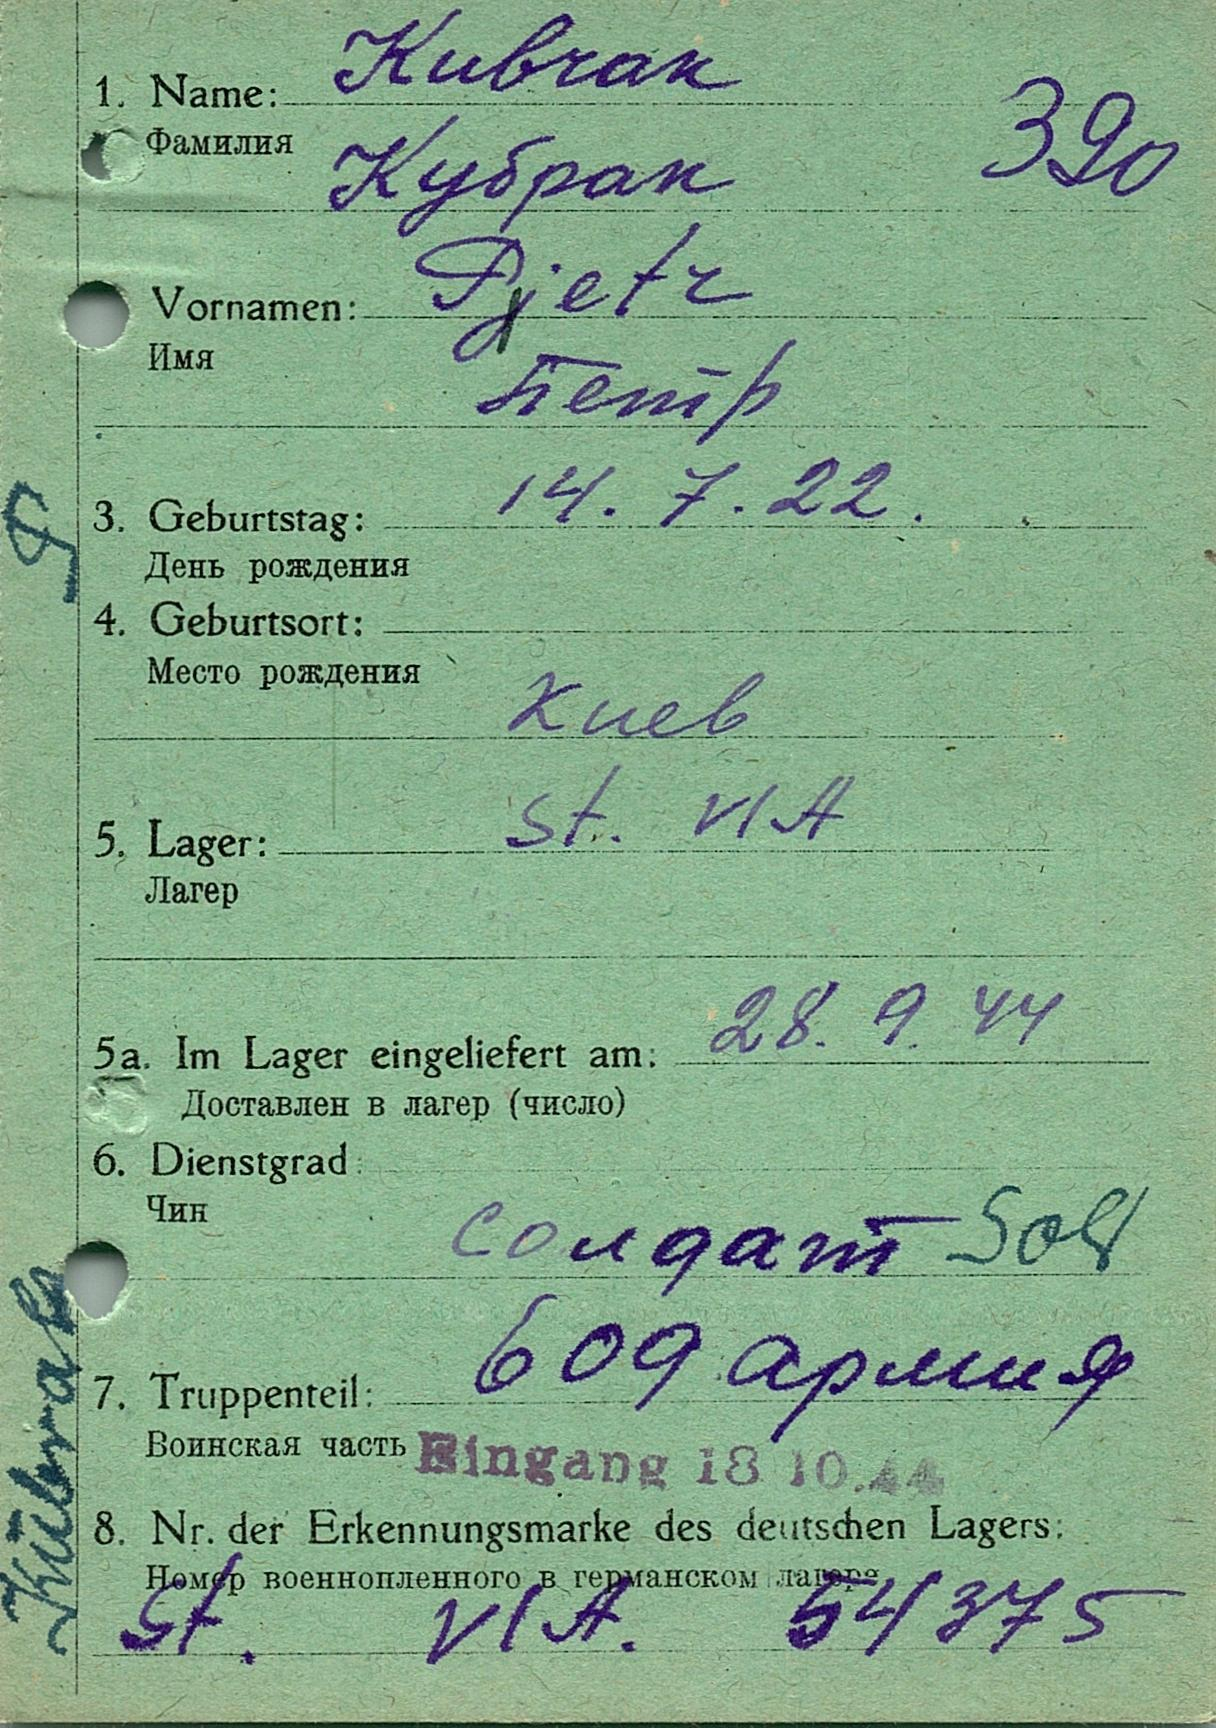 1. Name: Кивчак
Фамилия
390
Кубрак
Vornamen: Pjetr
Имя
Петр
3. Geburtstag: 14. 7. 22.
День рождения
4. Geburtsort:
Место рождения
Киев
5. Lager: St. VI A
Лагер
5a. Im Lager eingeliefert am: 28. 9. 44
Доставлен в лагер (число)
6. Dienstgrad:
Чин
солдат Sold
7. Truppenteil: 609 армия
Воинская часть
Eingang 18 10.44
8. Nr. der Erkennungsmarke des deutschen Lagers:
Номер военнопленного в германском лагере
St. VI A. 54375